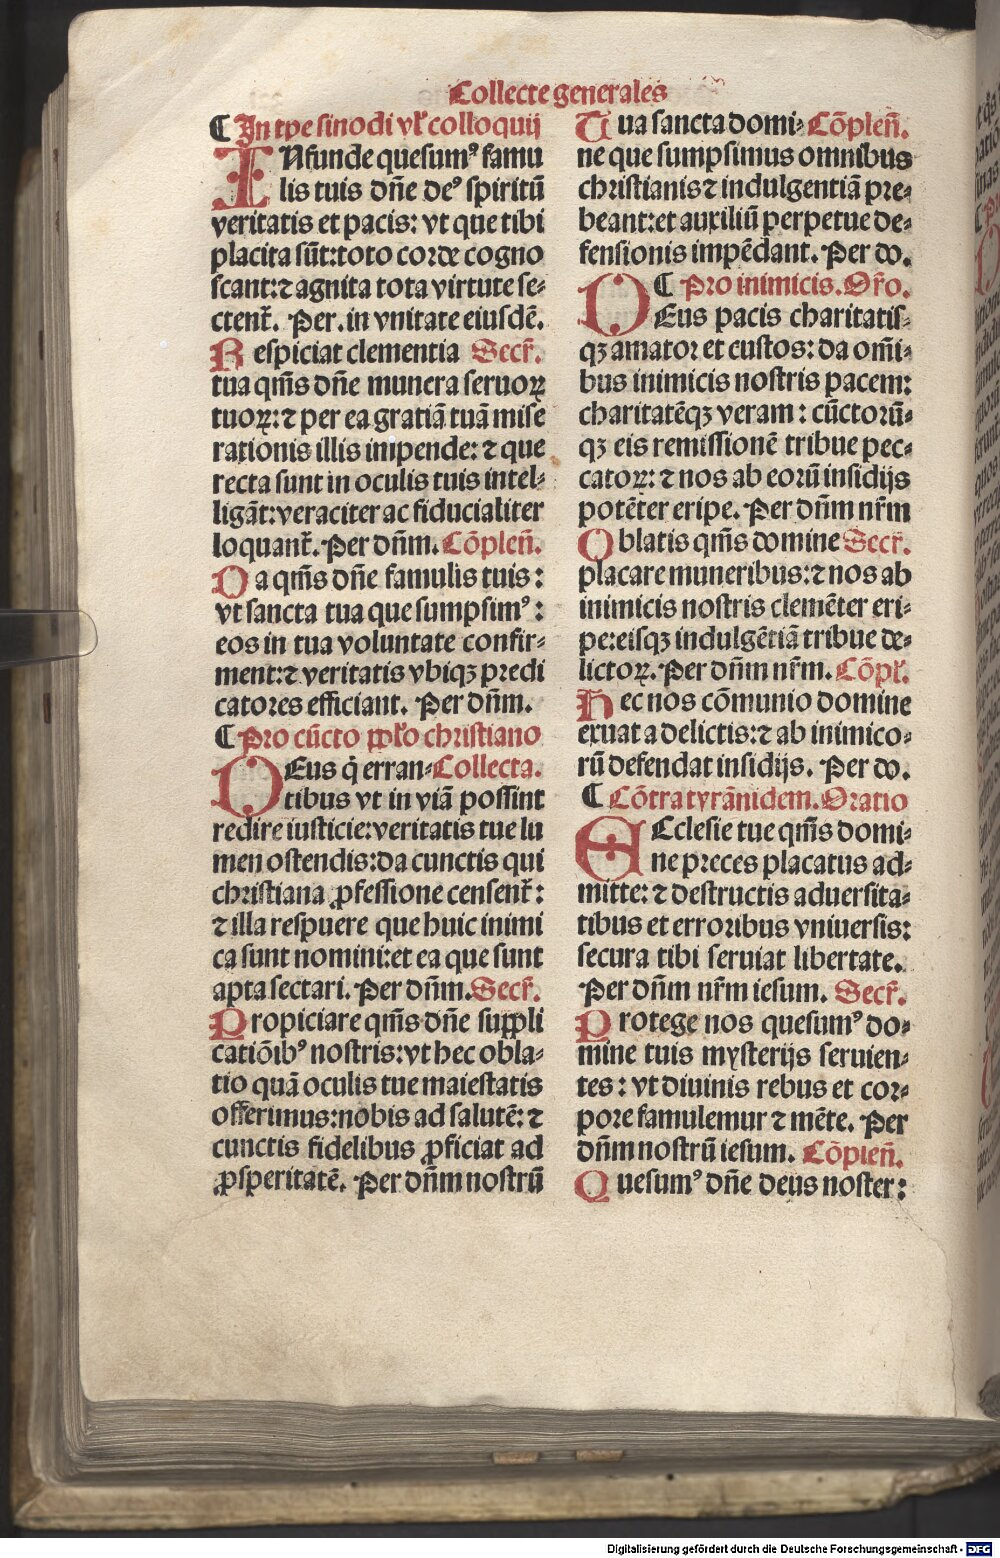 Collecte generales
¶ In tpe sinodi vl̕ colloquij
INfunde quesumꝰ famu
lis tuis dn̄e deꝰ spiritū
veritatis et pacis: vt que tibi
placita sūt: toto corde cogno
scant: ⁊ agnita tota virtute se⸗
ctent᷑. Per. in vnitate eiusdē.
Respiciat clementia Secr̄.
tua qm̄s dn̄e munera seruoꝝ
tuoꝝ: ⁊ per ea gratiā tuā mise
rationis illis inipende: ⁊ que
recta sunt in oculis tuis intel⸗
ligāt: veraciter ac fiducialiter
loquant᷑. Per dn̄m. Cōplen̄.
Da qm̄s dn̄e famulis tuis:
vt sancta tua que sumpsimꝰ:
eos in tua voluntate confir⸗
ment: ⁊ veritatis vbiqꝫ predi
catores efficiant. Per dn̄m.
¶ Pro cūcto pp̄lo christiano
DEus q̇ erran⸗ Collecta.
tibus vt in viā possint
redire iusticie: veritatis tue lu
men ostendis: da cunctis qui
christiana ꝓfessione censent᷑:
⁊ illa respuere que huic inimi
ca sunt nomini: et ea que sunt
apta sectari. Per dn̄m. Secr̄.
Propiciare qm̄s dn̄e suppli
catiōibꝰ nostris: vt hec obla⸗
tio quā oculis tue maiestatis
offerimus: nobis ad salutē: ⁊
cunctis fidelibus ꝓficiat ad
ꝓsperitatē. Per dn̄m nostrū
Tua sancta domi⸗ Cōplen̄.
ne que sumpsimus omnibus
christianis ⁊ indulgentiā pre⸗
beant: et auxiliū perpetue de⸗
fensionis impēdant. Per do.
¶ Pro inimicis. Or̄o.
DEus pacis charitatis⸗
qꝫ amator et custos: da om̄i⸗
bus inimicis nostris pacem:
charitatēqꝫ veram: cūctorū⸗
qꝫ eis remissionē tribue pec⸗
catoꝝ: ⁊ nos ab eorū insidijs
potēter eripe. Per dn̄m nr̄m
Oblatis qm̄s domine Secr̄.
placare muneribus: ⁊ nos ab
inimicis nostris clemēter eri⸗
pe: eisqꝫ indulgētiā tribue de⸗
lictoꝝ. Per dn̄m nr̄m. Cōpl̕.
Hec nos cōmunio domine
exuat a delictis: ⁊ ab inimico⸗
rū defendat insidijs. Per do.
¶ Cōtra tyrānidem. Oratio
ECclesie tue qm̄s domi⸗
ne preces placatus ad⸗
mitte: ⁊ destructis aduersita⸗
tibus et erroribus vniuersis:
secura tibi seruiat libertate.
Per dn̄m nr̄m iesum. Secr̄.
Protege nos quesumꝰ do⸗
mine tuis mysterijs seruien⸗
tes: vt diuinis rebus et cor⸗
pore famulemur ⁊ mēte. Per
dn̄m nostrū iesum. Cōplen̄.
Quesumꝰ dn̄e deus noster:
Digitalisierung gefördert durch die Deutsche Forschungsgemeinschaft - DFG